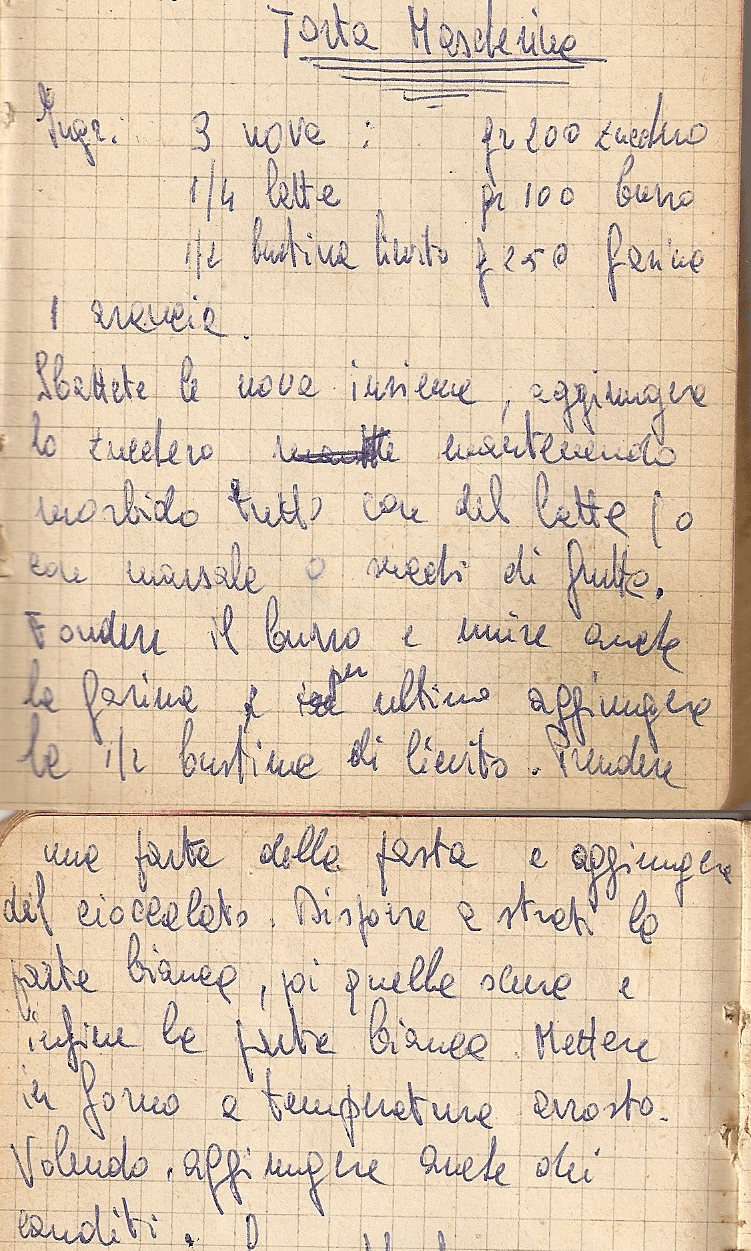 Torta Mascherina
Ingr. 3 uova : gr 200 zucchero
1/4 latte gr 100 burro
1/2 bustina lievito g 250 farina
1 arancia.
Sbattete le uova insieme, aggiungere
lo zucchero mantenendo
morbido tutto con del latte (o
con marsala o succhi di frutta.
Fondere il burro e unire anche
la farina e per ultimo aggiungere
la 1/2 bustina di lievito. Prendere
una parte della pasta e aggiungere
del cioccolato. Disporre a strati la
parte bianca, poi quella scura e
infine la parte bianca. Mettere
in forno a temperatura arrosto.
Volendo aggiungere anche dei
canditi.